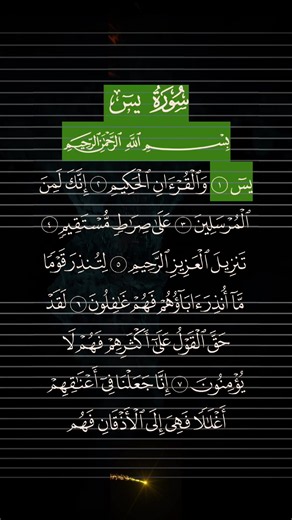 سُورَةُ يسٓ
بِسْمِ اللَّهِ الرَّحْمَٰنِ الرَّحِيمِ
يسٓ ١ وَالْقُرْءَانِ الْحَكِيمِ ٢ إِنَّكَ لَمِنَ
الْمُرْسَلِينَ ٣ عَلَىٰ صِرَاطٍ مُّسْتَقِيمٍ ٤
تَنزِيلَ الْعَزِيزِ الرَّحِيمِ ٥ لِتُنذِرَ قَوْمًا
مَّآ أُنذِرَ ءَابَآؤُهُمْ فَهُمْ غَٰفِلُونَ ٦ لَقَدْ
حَقَّ الْقَوْلُ عَلَىٰٓ أَكْثَرِهِمْ فَهُمْ لَا
يُؤْمِنُونَ ٧ إِنَّا جَعَلْنَا فِىٓ أَعْنَٰقِهِمْ
أَغْلَٰلًا فَهِىَ إِلَى الْأَذْقَانِ فَهُم